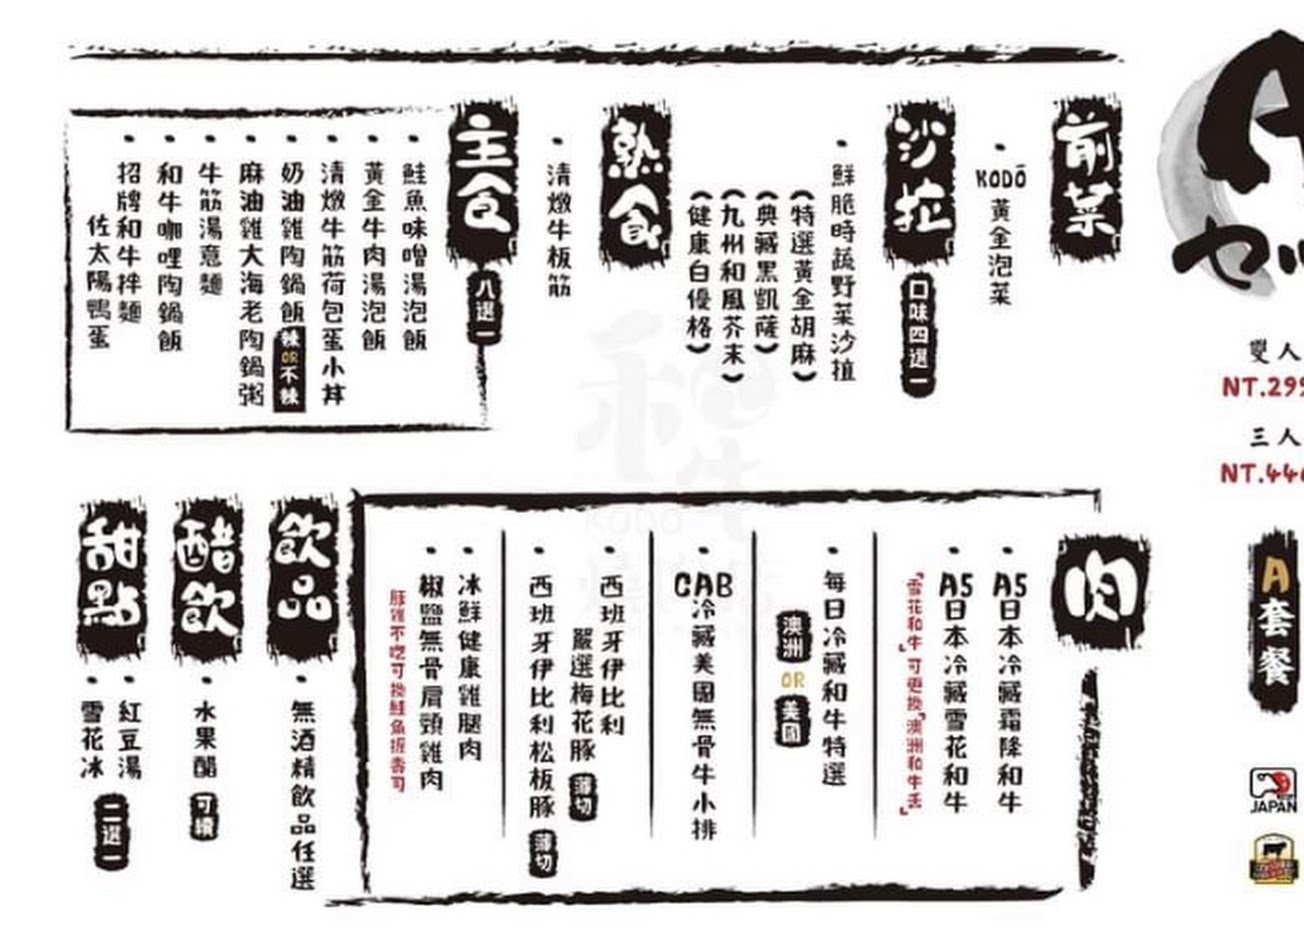 前菜
KODŌ黃金泡菜
沙拉
口味四選一
鮮脆時蔬野菜沙拉
(特選黃金胡麻)
(典藏黑凱薩)
(九州和風芥末)
(健康白優格)
熟食
清燉牛板筋
主食
八選一
鮭魚味噌湯泡飯
黃金牛肉湯泡飯
清燉牛筋荷包蛋小丼
奶油雞陶鍋飯 辣OR不辣
麻油雞大海老陶鍋粥
牛筋湯意麵
和牛咖哩陶鍋飯
招牌和牛拌麵
佐太陽鴨蛋
雙人
NT.299
三人
NT.446
A套餐
JAPAN
肉
A5日本冷藏霜降和牛
A5日本冷藏雪花和牛
「雪花和牛」可更換「澳洲和牛舌」
每日冷藏和牛特選
澳洲 OR 美國
CAB冷藏美國無骨牛小排
西班牙伊比利
嚴選梅花豚 薄切
西班牙伊比利松板豚 薄切
冰鮮健康雞腿肉
椒鹽無骨肩頸雞肉
豚雞不吃可換鮭魚握壽司
飲品
無酒精飲品任選
醋飲
水果醋 可續
甜點
紅豆湯
雪花冰
二選一
和牛
KODO